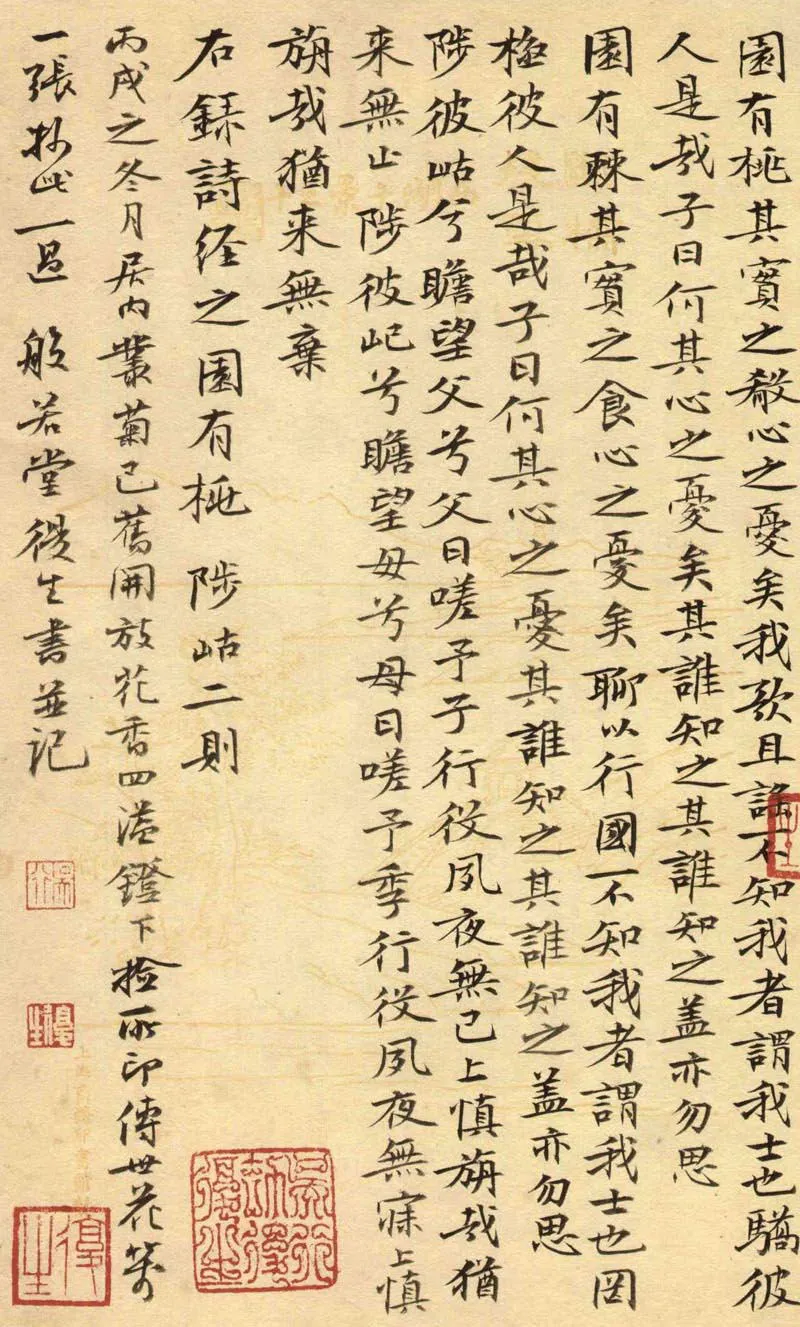 園有桃其實之殽心之憂矣我歌且謠不知我者謂我士也驕彼
人是哉子曰何其心之憂矣其誰知之其誰知之盖亦勿思
園有棘其實之食心之憂矣聊以行國不知我者謂我士也罔
極彼人是哉子曰何其心之憂其誰知之其誰知之盖亦勿思
陟彼岵兮瞻望父兮父曰嗟予子行役夙夜無已上慎旃哉猶
来無止陟彼屺兮瞻望母兮母曰嗟予季行役夙夜無寐上慎
旃哉猶来無棄
右録詩经之園有桃 陟岵二則
丙戌之冬月居内叢菊已舊開放花香四溢鐙下檢所印傳世花箋
一張抄此一過 般若堂復生書並記
復生
復生